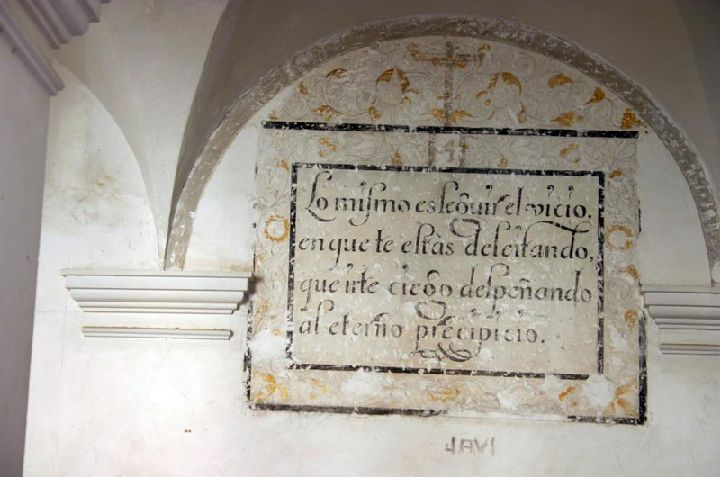 Lo mismo es seguir el vicio,
en que te estàs deleitando,
que irte ciego despeñando
al eterno precipicio.
JAVI